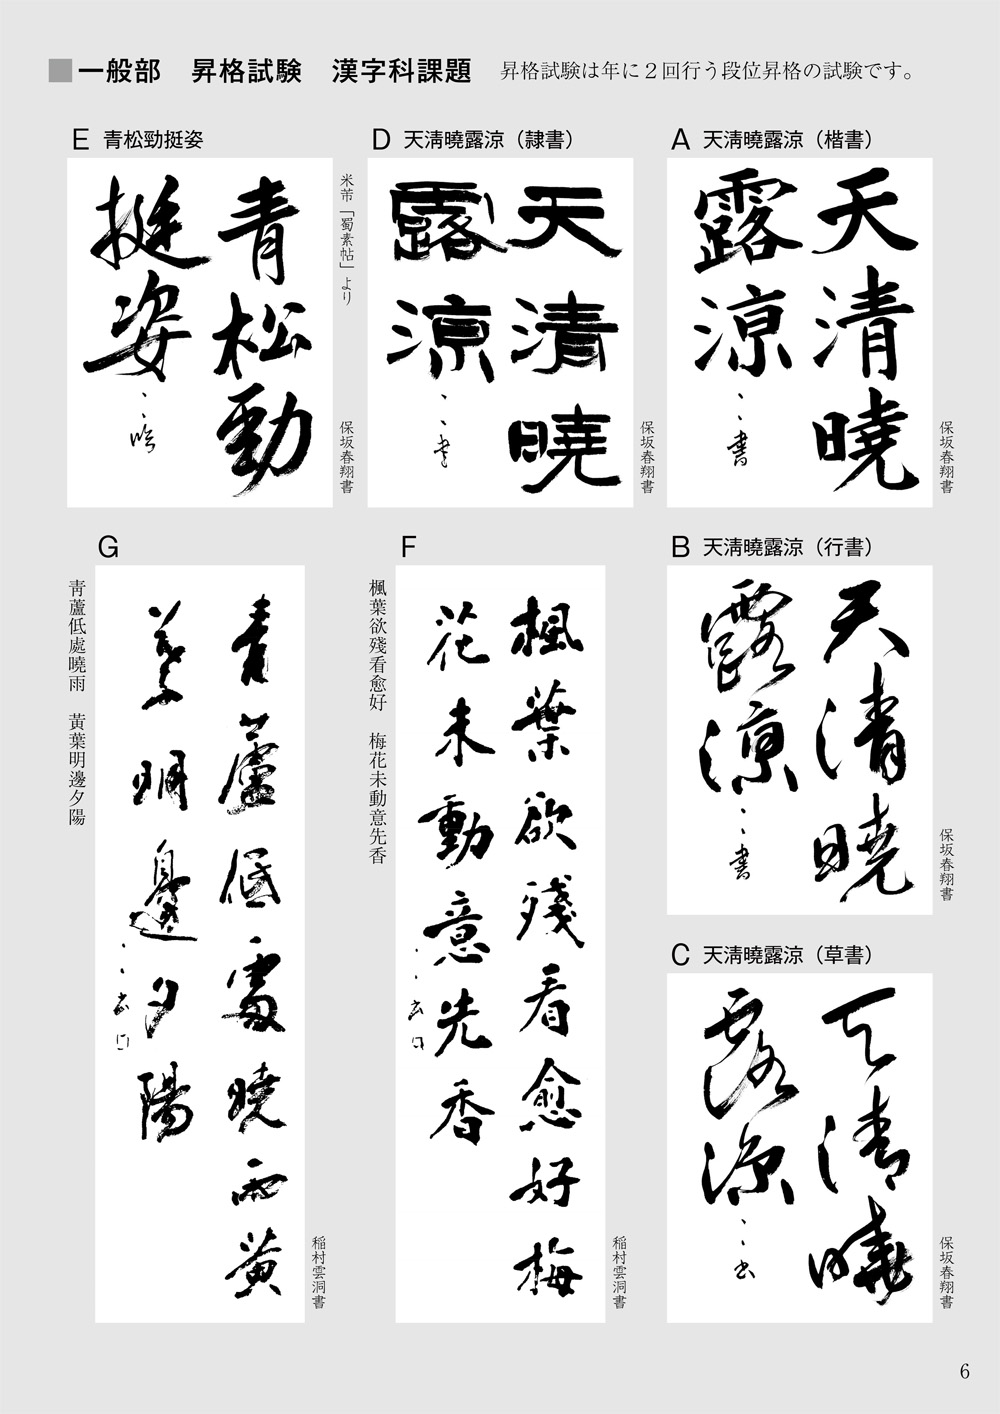 一般部　昇格試験　漢字科課題　昇格試験は年に２回行う段位昇格の試験です。
A 天淸曉露涼（楷書）
天清曉
露涼
〻書
保坂春翔書
B 天淸曉露涼（行書）
天清曉
露涼
〻書
保坂春翔書
C 天淸曉露涼（草書）
天清曉
露涼
〻書
保坂春翔書
D 天淸曉露涼（隷書）
天清曉
露涼
〻書
保坂春翔書
E 青松勁挺姿
米芾「蜀素帖」より
青松勁
挺姿
保坂春翔書
F
楓葉欲殘看愈好　梅花未動意先香
楓葉欲殘看愈好梅
花未動意先香
稲村雲洞書
G
靑蘆低處曉雨　黃葉明邊夕陽
青蘆低處曉雨黄
葉明邊夕陽
稲村雲洞書
6